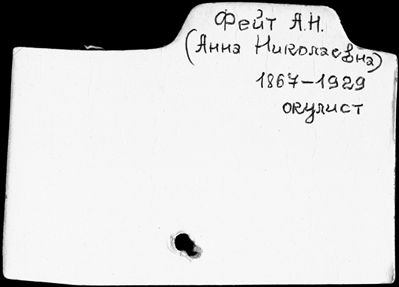 Фейт А.Н.
(Анна Николаевна)
1867–1929
окулист